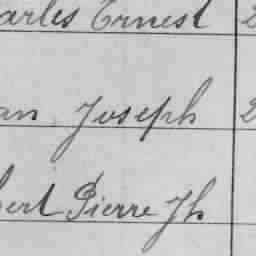 arles Ernest 2
an Joseph 2
bert Pierre Jh